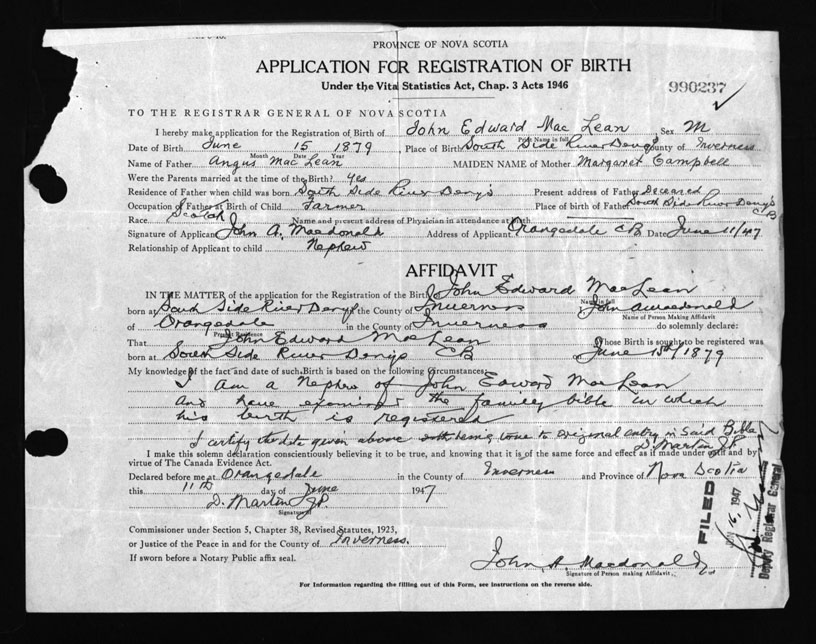 PROVINCE OF NOVA SCOTIA
APPLICATION FOR REGISTRATION OF BIRTH
Under the Vital Statistics Act, Chap. 3 Acts 1946
990237
TO THE REGISTRAR GENERAL OF NOVA SCOTIA
I hereby make application for the Registration of Birth of John Edward Mac Lean Sex M
Print Name in full
Date of Birth June 15 1879, Place of Birth South Side River Denys County of Inverness
Month Date Year
Name of Father Angus Mac Lean MAIDEN NAME of Mother Margaret Campbell
Were the Parents married at time of the Birth? yes
Residence of Father when child was born South Side River Denys Present address of Father Deceased
Occupation of Father at Birth of Child Farmer Place of birth of Father South Side River Denys CB
Race Scotch Name and present address of Physician in attendance at birth
Signature of Applicant John A. Macdonald Address of Applicant Orangedale CB Date June 11/47
Relationship of Applicant to child Nephew
AFFIDAVIT
IN THE MATTER of the application for the Registration of the Birth of John Edward MacLean
Name in full
born at South Side River Denys in the County of Inverness John A Macdonald
Name of Person Making Affidavit
of Orangedale in the County of Inverness do solemnly declare:
Present Residence
That John Edward MacLean Whose Birth is sought to be registered was
born at South Side River Denys CB June 15th/1879
My knowledge of the fact and date of such Birth is based on the following Circumstances:
I am a Nephew of John Edward MacLean
and have examined the family bible in which
his birth is registered
I certify the date given above being true to original entry in said Bible
D. Martin J.P.
I make this solemn declaration conscientiously believing it to be true, and knowing that it is of the same force and effect as if made under oath and by
virtue of The Canada Evidence Act.
Declared before me at Orangedale in the County of Inverness and Province of Nova Scotia
this 11th day of June 1947
D. Martin J.P.
Signature of
Commissioner under Section 5, Chapter 38, Revised Statutes, 1923,
or Justice of the Peace in and for the County of Inverness.
If sworn before a Notary Public affix seal.
John A. Macdonald
Signature of Person making Affidavit
For Information regarding the filling out of this Form, see instructions on the reverse side.
FILED
16, 1947
Deputy Registrar General